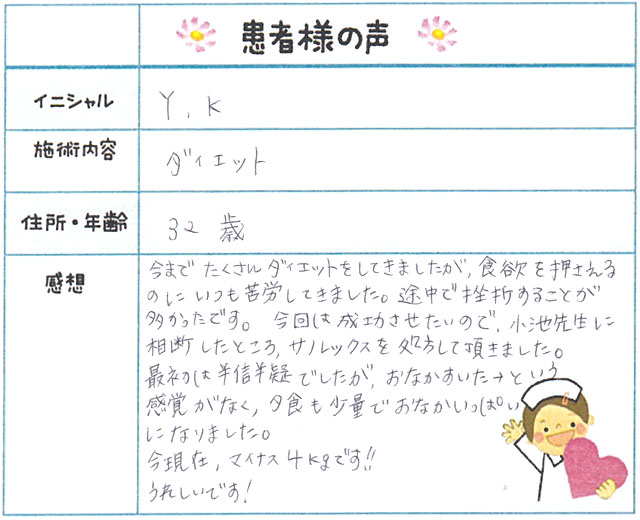 患者様の声
イニシャル
Y, K
施術内容
ダイエット
住所・年齢
32 歳
感想
今まで たくさん ダイエットをしてきましたが, 食欲を押さえる
のに いつも苦労してきました。途中で挫折することが
多かったです。 今回は成功させたいので, 小池先生に
相断したところ, サノレックスを処方して頂きました。
最初は半信半疑でしたが, おなかすいた→という
感覚がなく, 夕食も少量でおなかいっぱい
になりました。
今現在, マイナス4kgです!!
うれしいです!